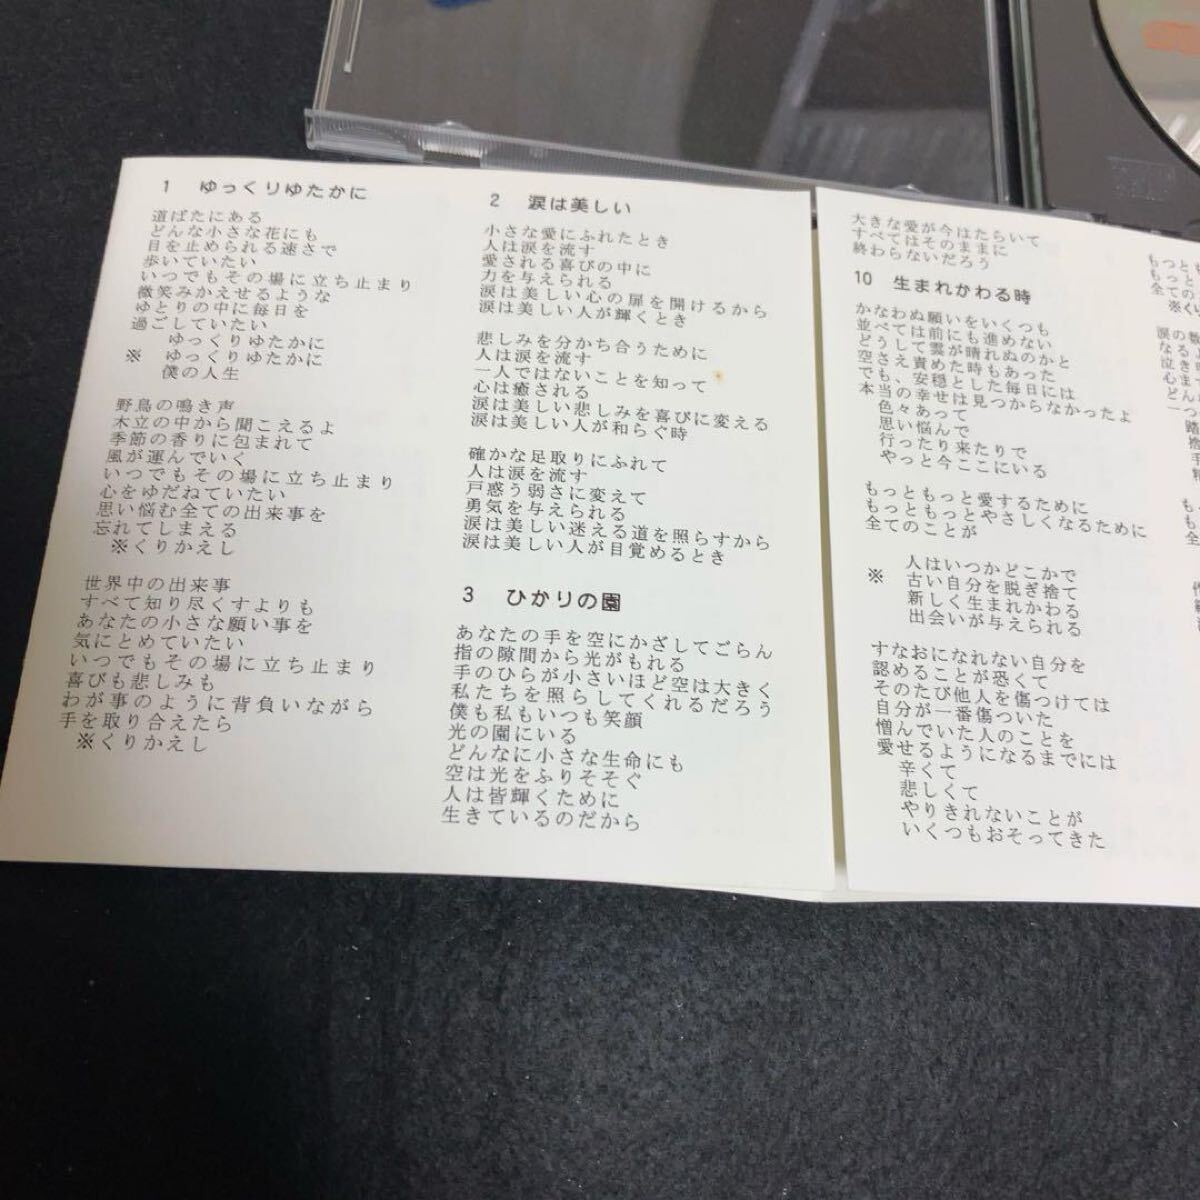 1　ゆっくりゆたかに
道ばたにある
どんな小さな花にも
目を止められる速さで
歩いていたい
いつでもその場に立ち止まり
微笑みかえせるような
ゆとりの中に毎日を
過ごしていたい
ゆっくりゆたかに
※　ゆっくりゆたかに
僕の人生
野鳥の鳴き声
木立の中から聞こえるよ
季節の香りに包まれて
風が運んでいく
いつでもその場に立ち止まり
心をゆだねていたい
思い悩む全ての出来事を
忘れてしまえる
※くりかえし
世界中の出来事
すべて知り尽くすよりも
あなたの小さな願い事を
気にとめていたい
いつでもその場に立ち止まり
喜びも悲しみも
わが事のように背負いながら
手を取り合えたら
※くりかえし
2　涙は美しい
小さな愛にふれたとき
人は涙を流す
愛される喜びの中に
力を与えられる
涙は美しい心の扉を開けるから
涙は美しい人が輝くとき
悲しみを分かち合うために
人は涙を流す
一人ではないことを知って
心は癒される
涙は美しい悲しみを喜びに変える
涙は美しい人が和らぐ時
確かな足取りにふれて
人は涙を流す
戸惑う弱さに変えて
勇気を与えられる
涙は美しい迷える道を照らすから
涙は美しい人が目覚めるとき
3　ひかりの園
あなたの手を空にかざしてごらん
指の隙間から光がもれる
手のひらが小さいほど空は大きく
私たちを照らしてくれるだろう
僕も私もいつも笑顔
光の園にいる
どんなに小さな生命にも
空は光をふりそそぐ
人は皆輝くために
生きているのだから
大きな愛が今はたらいて
すべてはそのままに
終わらないだろう
10　生まれかわる時
かなわぬ願いをいくつも
並べては前にも進めない
どうして雲が晴れぬのかと
空さえ責めた時もあった
でも、安穏とした毎日には
本当の幸せは見つからなかったよ
色々あって
思い悩んで
行ったり来たりで
やっと今ここにいる
もっともっと愛するために
もっともっとやさしくなるために
全てのことが
人はいつかどこかで
※　古い自分を脱ぎ捨て
新しく生まれかわる
出会いが与えられる
すなおになれない自分を
認めることが恐くて
そのたび他人を傷つけては
自分が一番傷ついた
憎んでいた人のことを
愛せるようになるまでには
辛くて
悲しくて
やりきれないことが
いくつもおそってきた
もっとも
もっと
全ての
※く
涙の数
なる
泣き
心ま
どん
一つ
踏
抱
手